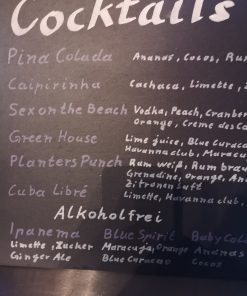 Cocktails
Pina Colada Ananas, Cocos, Rum
Caipirinha Cachaca, Limette,
Sex on the Beach Vodka, Peach, Cranber
Orange, Creme des Cas
Green House Lime juice, Blue Curacao
Havanna club, Maracuj
Planters Punch Rum weiß, Rum brau
Grenadine, orange, Ana
Zitronensaft
Cuba Libré Limette, Havanna club,
Alkoholfrei
Ipanema Blue Spirit Baby Col
Limette, Zucker Maracuja, Orange Ananas
Ginger Ale Blue Curacao Cocos